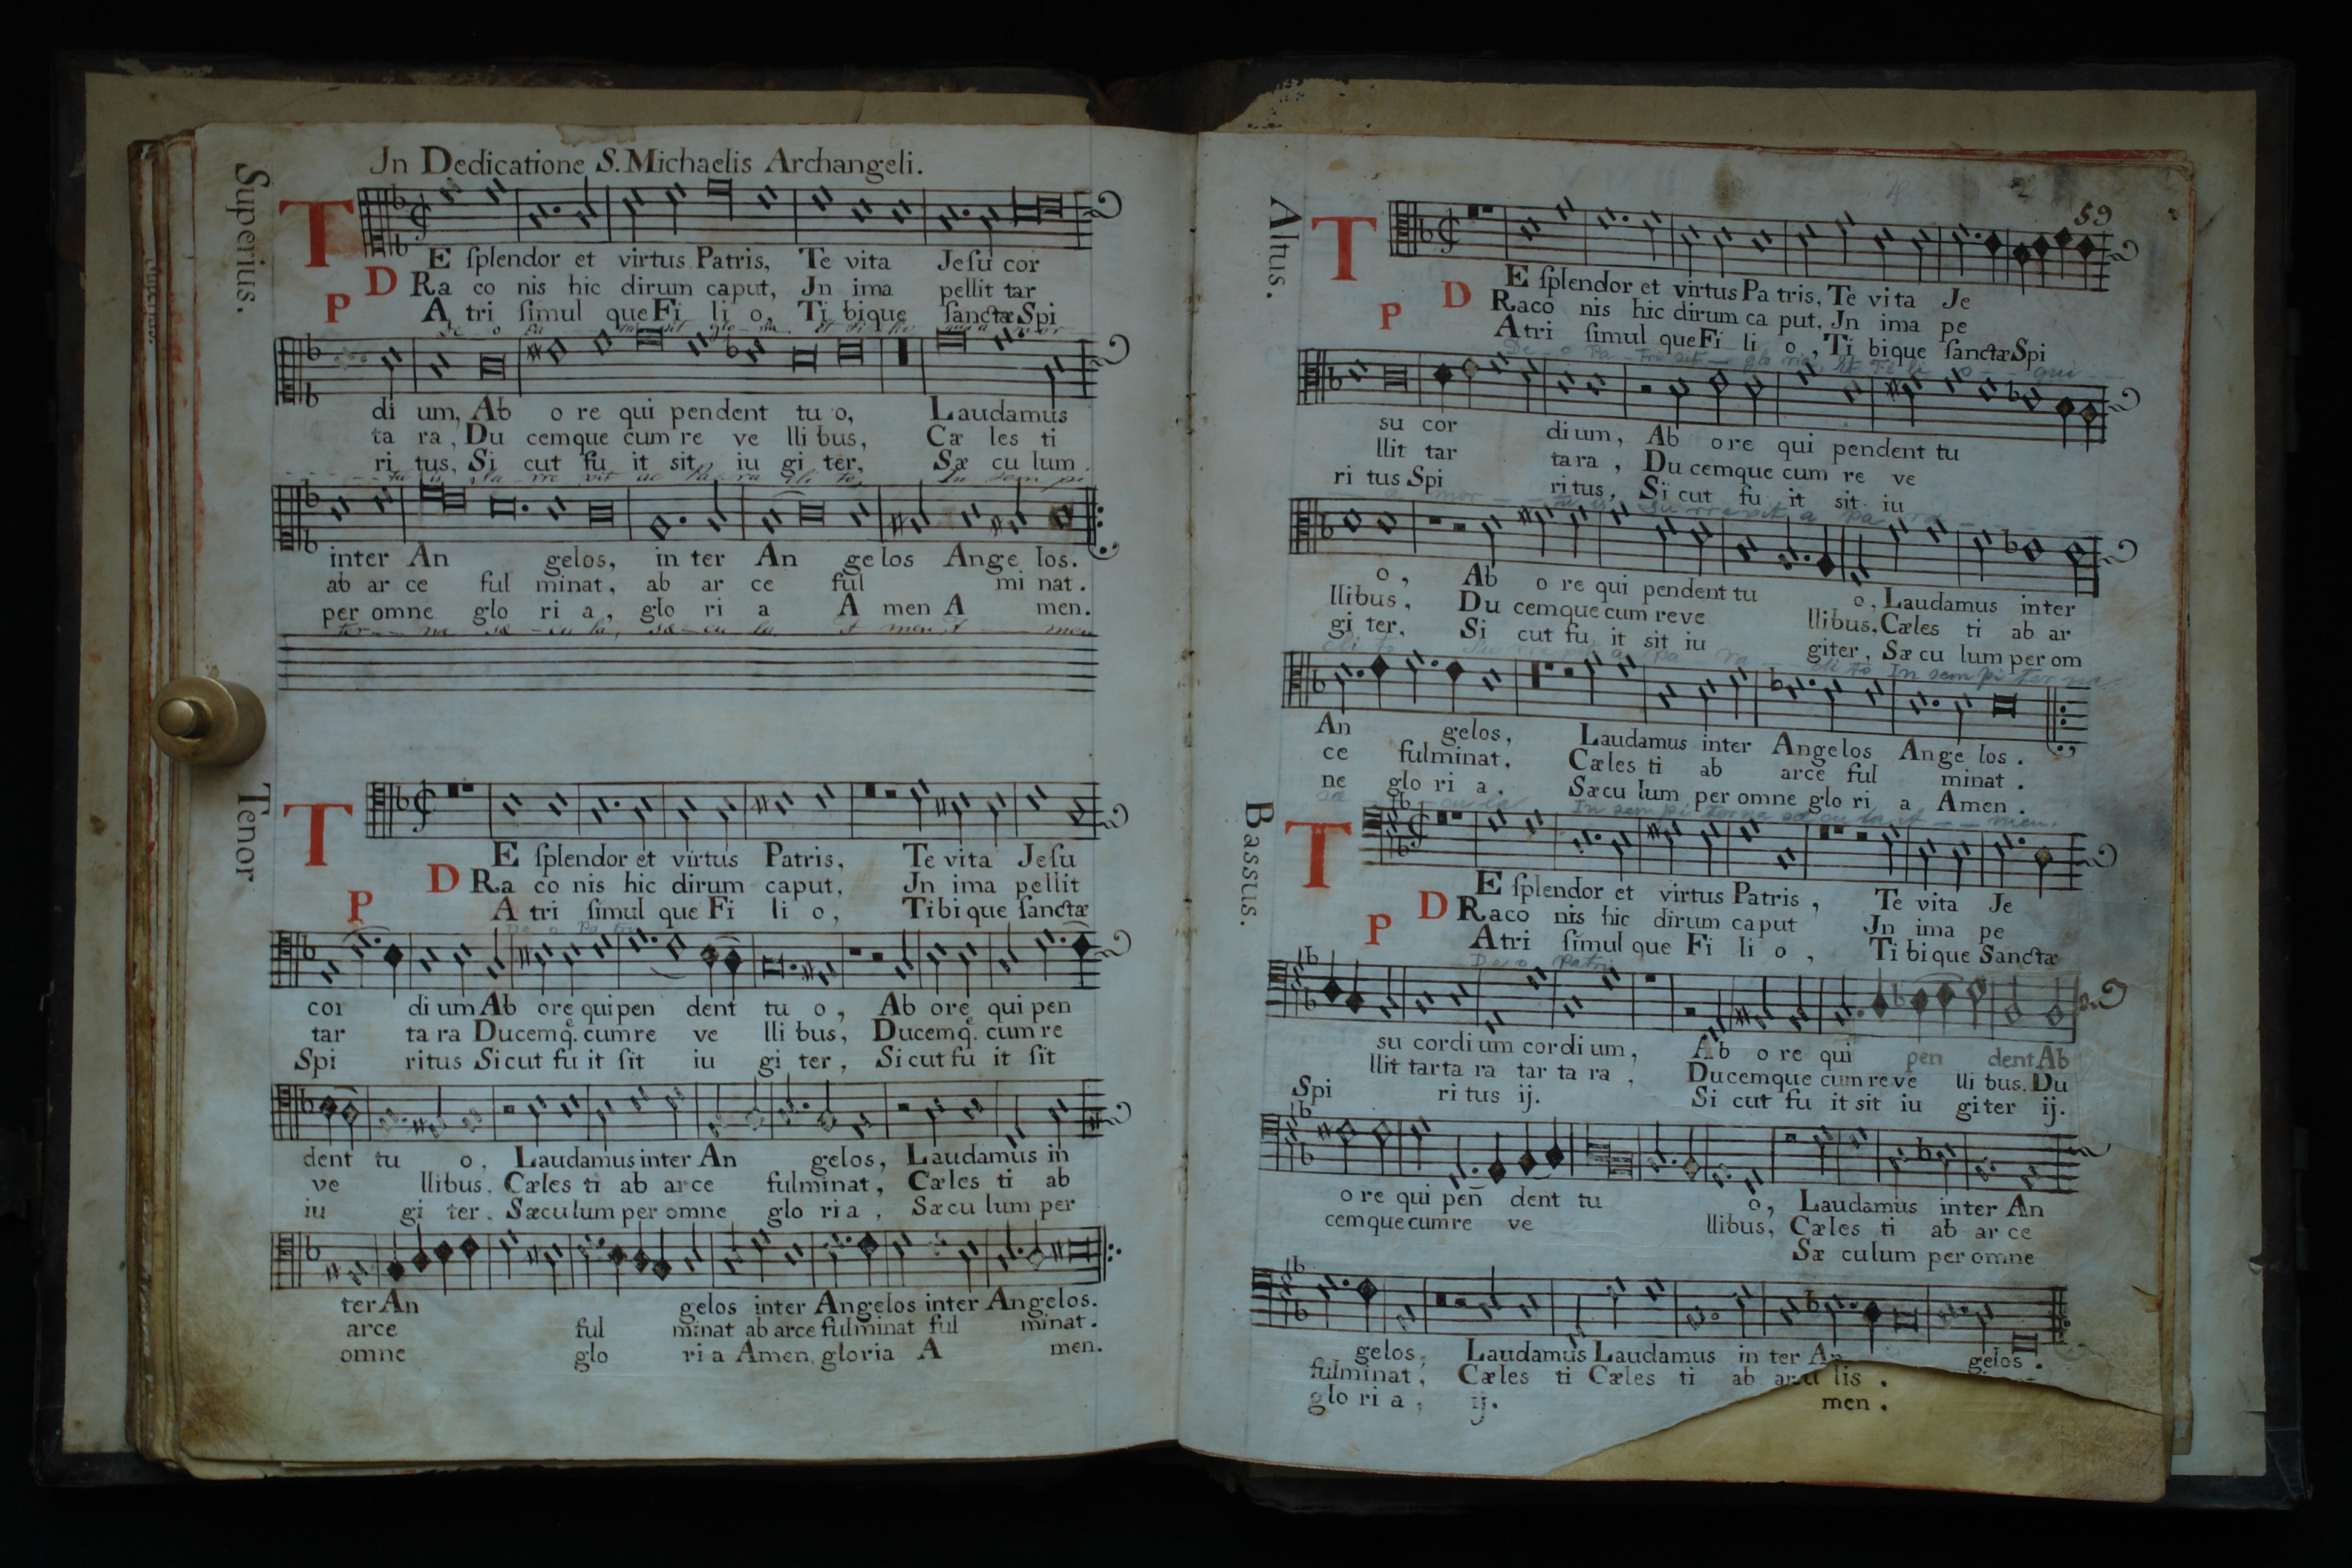 Jn Dedicatione S. Michaelis Archangeli.
Superius.
TE ſplendor et virtus Patris, Te vita Jeſu cor
DRa co nis hic dirum caput, Jn ima pellit tar
PA tri ſimul que Fi li o, Ti bique ſanctæ Spi
di um, Ab o re qui pendent tu o, Laudamus
ta ra, Du cemque cum re ve lli bus, Cæ les ti
ri tus, Si cut fu it sit iu gi ter, Sæ cu lum
inter An gelos, in ter An ge los Ange los.
ab ar ce ful minat, ab ar ce ful mi nat.
per omne glo ri a, glo ri a A men A men.
Tenor
TE ſplendor et virtus Patris, Te vita Jeſu
DRa co nis hic dirum caput, Jn ima pellit
PA tri ſimul que Fi li o, Tibi que ſanctæ
cor di um Ab ore qui pen dent tu o, Ab ore qui pen
tar ta ra Ducemq̃. cum re ve lli bus, Ducemq̃. cum re
Spi ritus Sicut fu it ſit iu gi ter, Si cut fu it ſit
dent tu o, Laudamus inter An gelos, Laudamus in
ve llibus, Cæles ti ab ar ce fulminat, Cæles ti ab
iu gi ter. Sæculum per omne glo ri a, Sæcu lum per
ter An gelos inter Angelos inter Angelos.
arce ful minat ab arce fulminat ful minat.
omne glo ri a Amen, gloria A men.
59
Altus.
TE ſplendor et virtus Pa tris, Te vi ta Je
DRaco nis hic dirum ca put, Jn ima pe
PAtri ſimul que Fi li o, Ti bique ſanctæ Spi
De o Pa tri sit glo ria, Et Fi li o qui
su cor di um, Ab ore qui pendent tu
llit tar ta ra, Du cemque cum re ve
ri tus Spi ri tus, Si cut fu it sit iu
o, Ab o re qui pendent tu o, Laudamus inter
llibus, Du cemque cum re ve llibus, Cæles ti ab ar
gi ter, Si cut fu it sit iu giter, Sæ cu lum per om
An gelos, Laudamus inter Angelos Ange los.
ce fulminat, Cæles ti ab arce ful minat.
ne glo ri a, Sæcu lum per omne glo ri a Amen.
Bassus.
TE ſplendor et virtus Patris, Te vita Je
DRaco nis hic dirum caput Jn ima pe
PAtri ſimul que Fi li o, Ti bi que Sanctæ
Deo Patri
su cordi um cor di um, Ab o re qui pen dent Ab
llit tar ta ra tar ta ra, Ducemque cum re ve lli bus. Du
Spi ri tus ij. Si cut fu it sit iu giter ij.
o re qui peñ dent tu o, Laudamus inter An
cemque cum re ve llibus, Cæles ti ab ar ce
Sæ culum per omne
gelos, Laudamus Laudamus in ter An gelos.
fulminat, Cæles ti Cæles ti ab
glo ri a, ij. men.